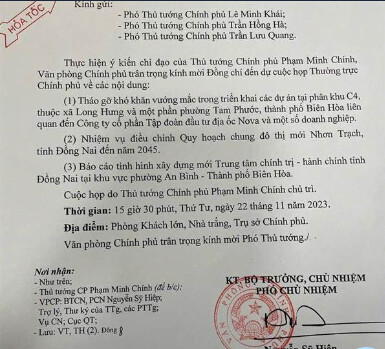 Kính gửi:
HỎA TỐC
- Phó Thủ tướng Chính phủ Lê Minh Khái;
- Phó Thủ tướng Chính phủ Trần Hồng Hà;
- Phó Thủ tướng Chính phủ Trần Lưu Quang.
Thực hiện ý kiến chỉ đạo của Thủ tướng Chính phủ Phạm Minh Chính,
Văn phòng Chính phủ trân trọng kính mời Đồng chí đến dự cuộc họp Thường trực
Chính phủ về các nội dung:
(1) Tháo gỡ khó khăn vướng mắc trong triển khai các dự án tại phân khu C4,
thuộc xã Long Hưng và một phần phường Tam Phước, thành phố Biên Hòa liên
quan đến Công ty cổ phần Tập đoàn đầu tư địa ốc Nova và một số doanh nghiệp.
(2) Nhiệm vụ điều chỉnh Quy hoạch chung đô thị mới Nhơn Trạch,
tỉnh Đồng Nai đến năm 2045.
(3) Báo cáo tình hình xây dựng mới Trung tâm chính trị - hành chính tỉnh
Đồng Nai tại khu vực phường An Bình - Thành phố Biên Hòa.
Cuộc họp do Thủ tướng Chính phủ Phạm Minh Chính chủ trì.
Thời gian: 15 giờ 30 phút, Thứ Tư, ngày 22 tháng 11 năm 2023.
Địa điểm: Phòng Khách lớn, Nhà trắng, Trụ sở Chính phủ.
Văn phòng Chính phủ trân trọng kính mời Phó Thủ tướng./.
Nơi nhận:
- Như trên;
- Thủ tướng CP Phạm Minh Chính (để b/c);
- VPCP: BTCN, PCN Nguyễn Sỹ Hiệp;
Trợ lý, Thư ký của TTg, các PTTg;
Vụ CN; Cục QT;
- Lưu: VT, TH (2).
KT. BỘ TRƯỞNG, CHỦ NHIỆM
PHÓ CHỦ NHIỆM
VĂN PHÒNG CHÍNH
Sỹ Hiệp